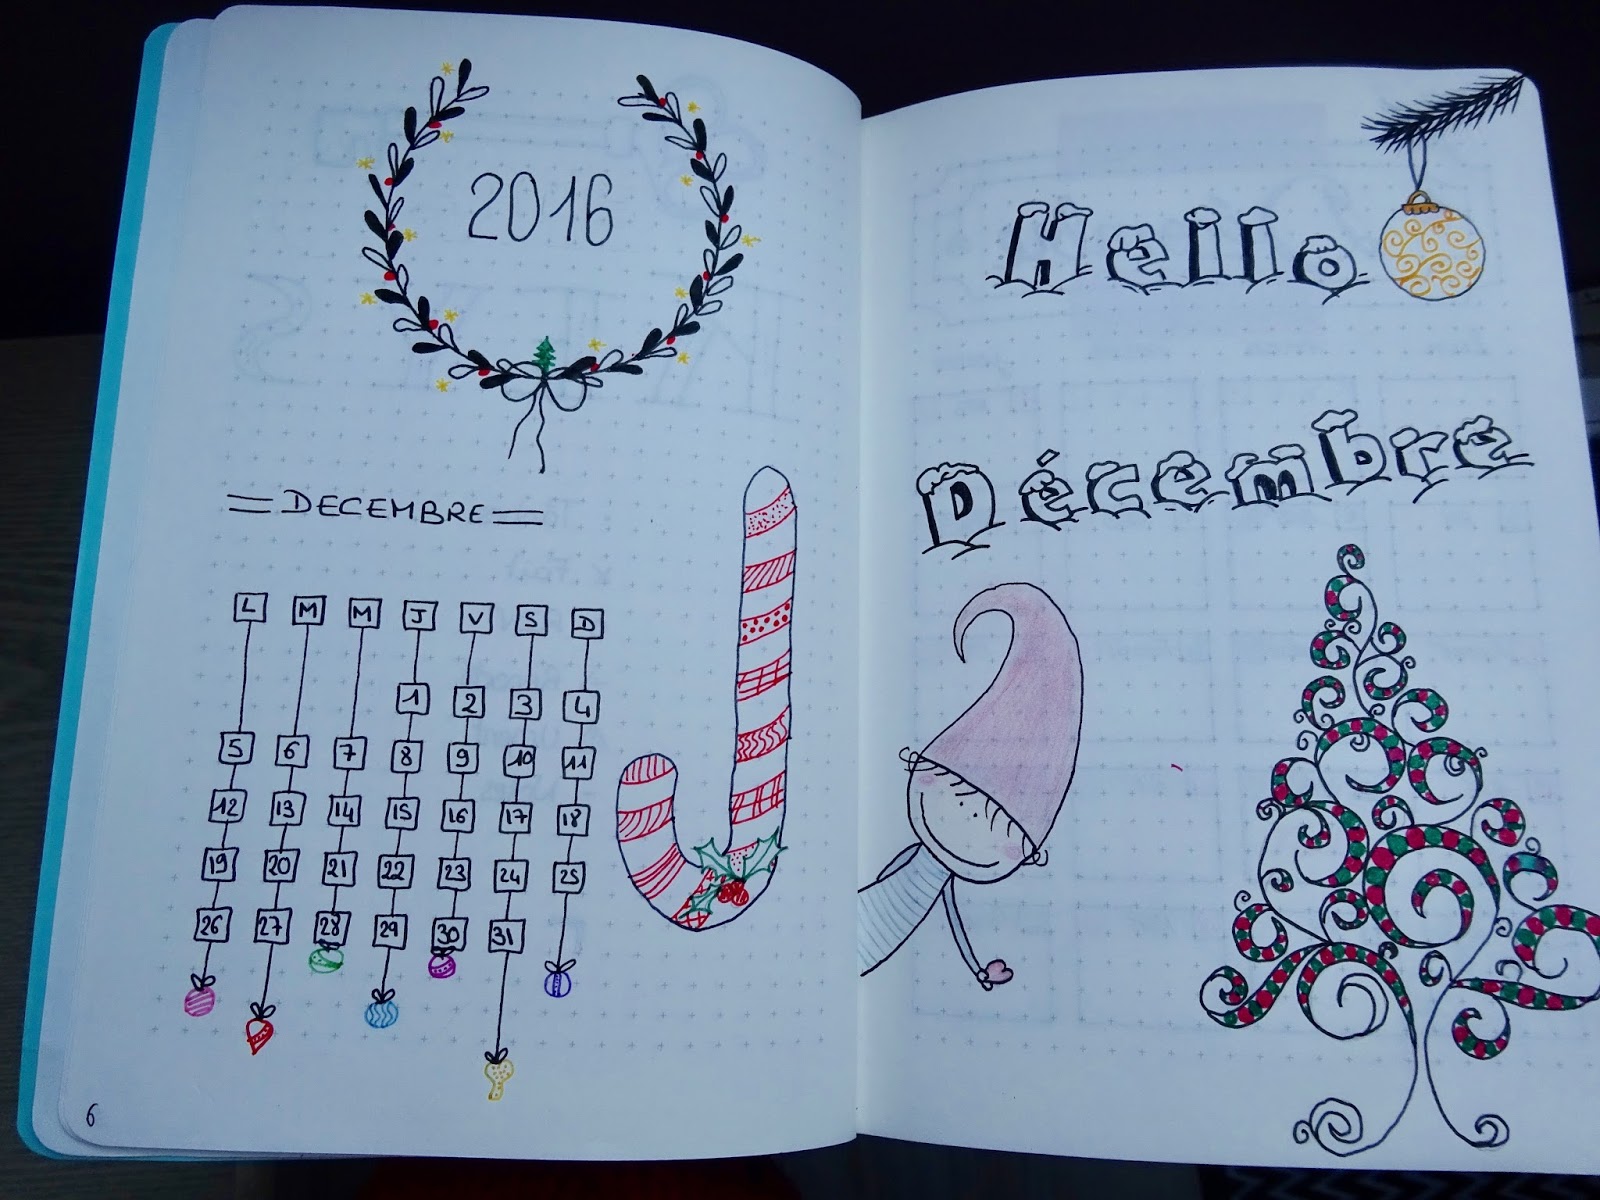 2016
DECEMBRE
L M M J V S D
1 2 3 4
5 6 7 8 9 10 11
12 13 14 15 16 17 18
19 20 21 22 23 24 25
26 27 28 29 30 31
6
Hello
Décembre